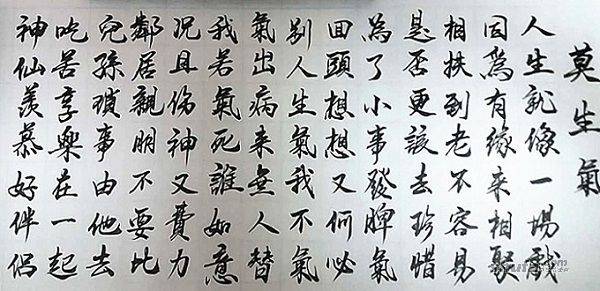 莫生氣
人生就像一場戲
因為有緣來相聚
相扶到老不容易
是否更該去珍惜
為了小事發脾氣
回頭想想又何必
别人生氣我不氣
氣出病来無人替
我若氣死誰如意
況且傷神又費力
鄰居親朋不要比
兒孫瑣事由他去
吃苦享樂在一起
神仙羨慕好伴侶